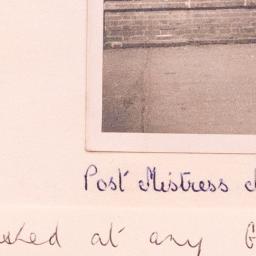 Post Mistress
at any G